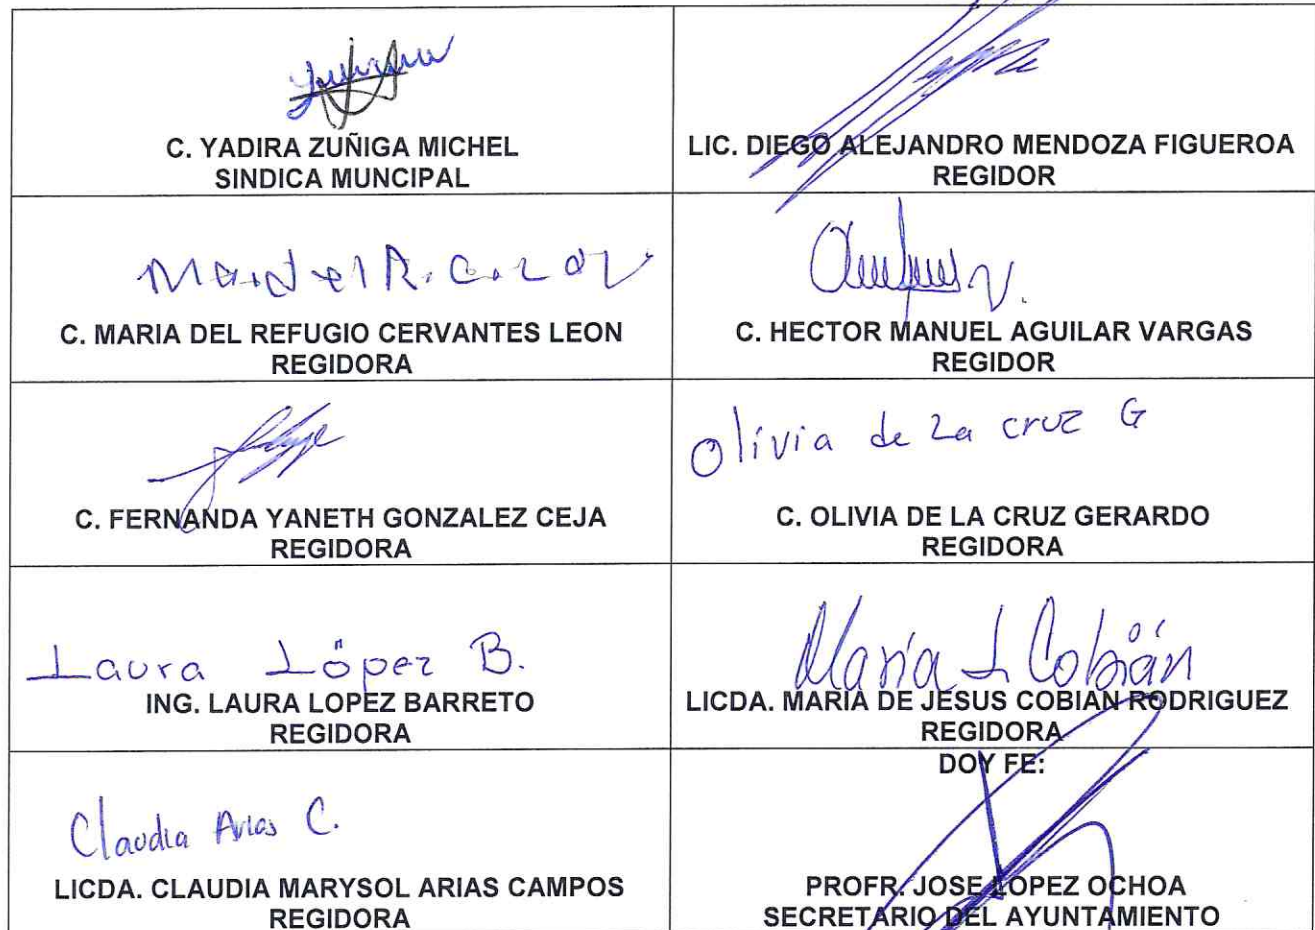 C. YADIRA ZUÑIGA MICHEL
SINDICA MUNCIPAL
LIC. DIEGO ALEJANDRO MENDOZA FIGUEROA
REGIDOR
C. MARIA DEL REFUGIO CERVANTES LEON
REGIDORA
C. HECTOR MANUEL AGUILAR VARGAS
REGIDOR
C. FERNANDA YANETH GONZALEZ CEJA
REGIDORA
Olivia de La cruz G
C. OLIVIA DE LA CRUZ GERARDO
REGIDORA
Laura López B.
ING. LAURA LOPEZ BARRETO
REGIDORA
María J Cobián
LICDA. MARIA DE JESUS COBIAN RODRIGUEZ
REGIDORA
Claudia Arias C.
LICDA. CLAUDIA MARYSOL ARIAS CAMPOS
REGIDORA
DOY FE:
PROFR. JOSE LOPEZ OCHOA
SECRETARIO DEL AYUNTAMIENTO